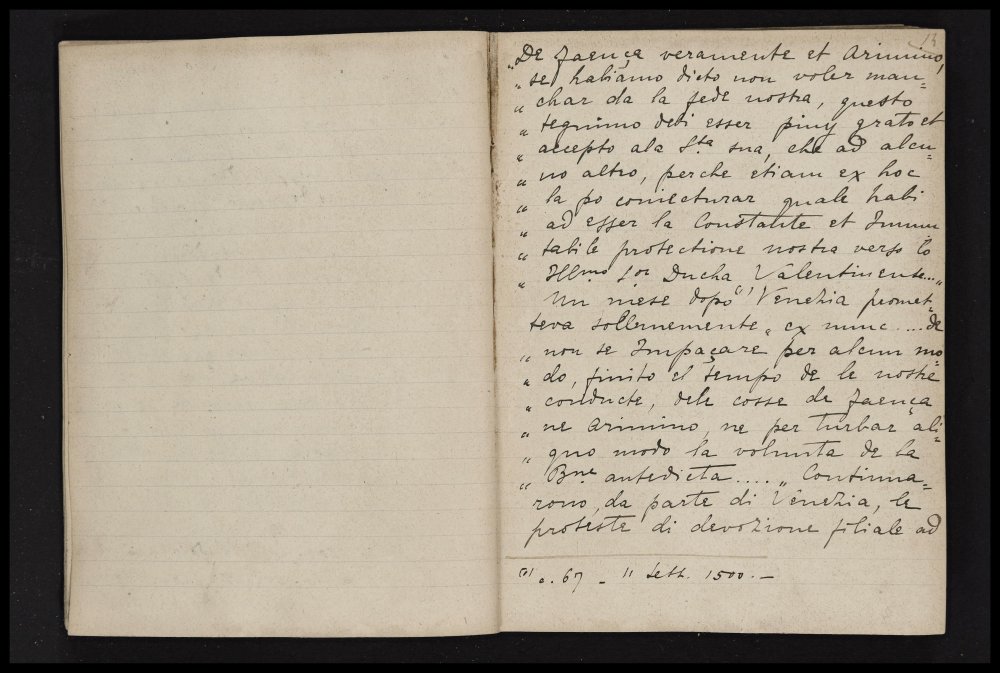 13
"De Faença veramente et Arimino,
" se habiamo dicto non voler man=
" char da la fede nostra, questo
" tegnimo debi esser piuy grato et
" accepto ala S.ta sua, che ad alcu=
" no altro, perche etiam ex hoc
" la po coniecturar quale habi
" ad esser la Constante et Immu
" tabile protectione nostra verso lo
" Ill.mo S.or Ducha Valentinense..."
Un mese dopo (1) Venezia promet=
teva sollennemente "ex nunc .... de
" non se Impaçare per alcun mo=
" do, finito el tempo de le nostre
" conducte, dele cosse de Faença
" ne Arimino, ne per turbar ali=
" quo modo la volunta de la
" B.ne antedicta...." Continua=
rono, da parte di Venezia, le
proteste di devozione filiale ad
(1) c. 67 - 11 Sett. 1500. -